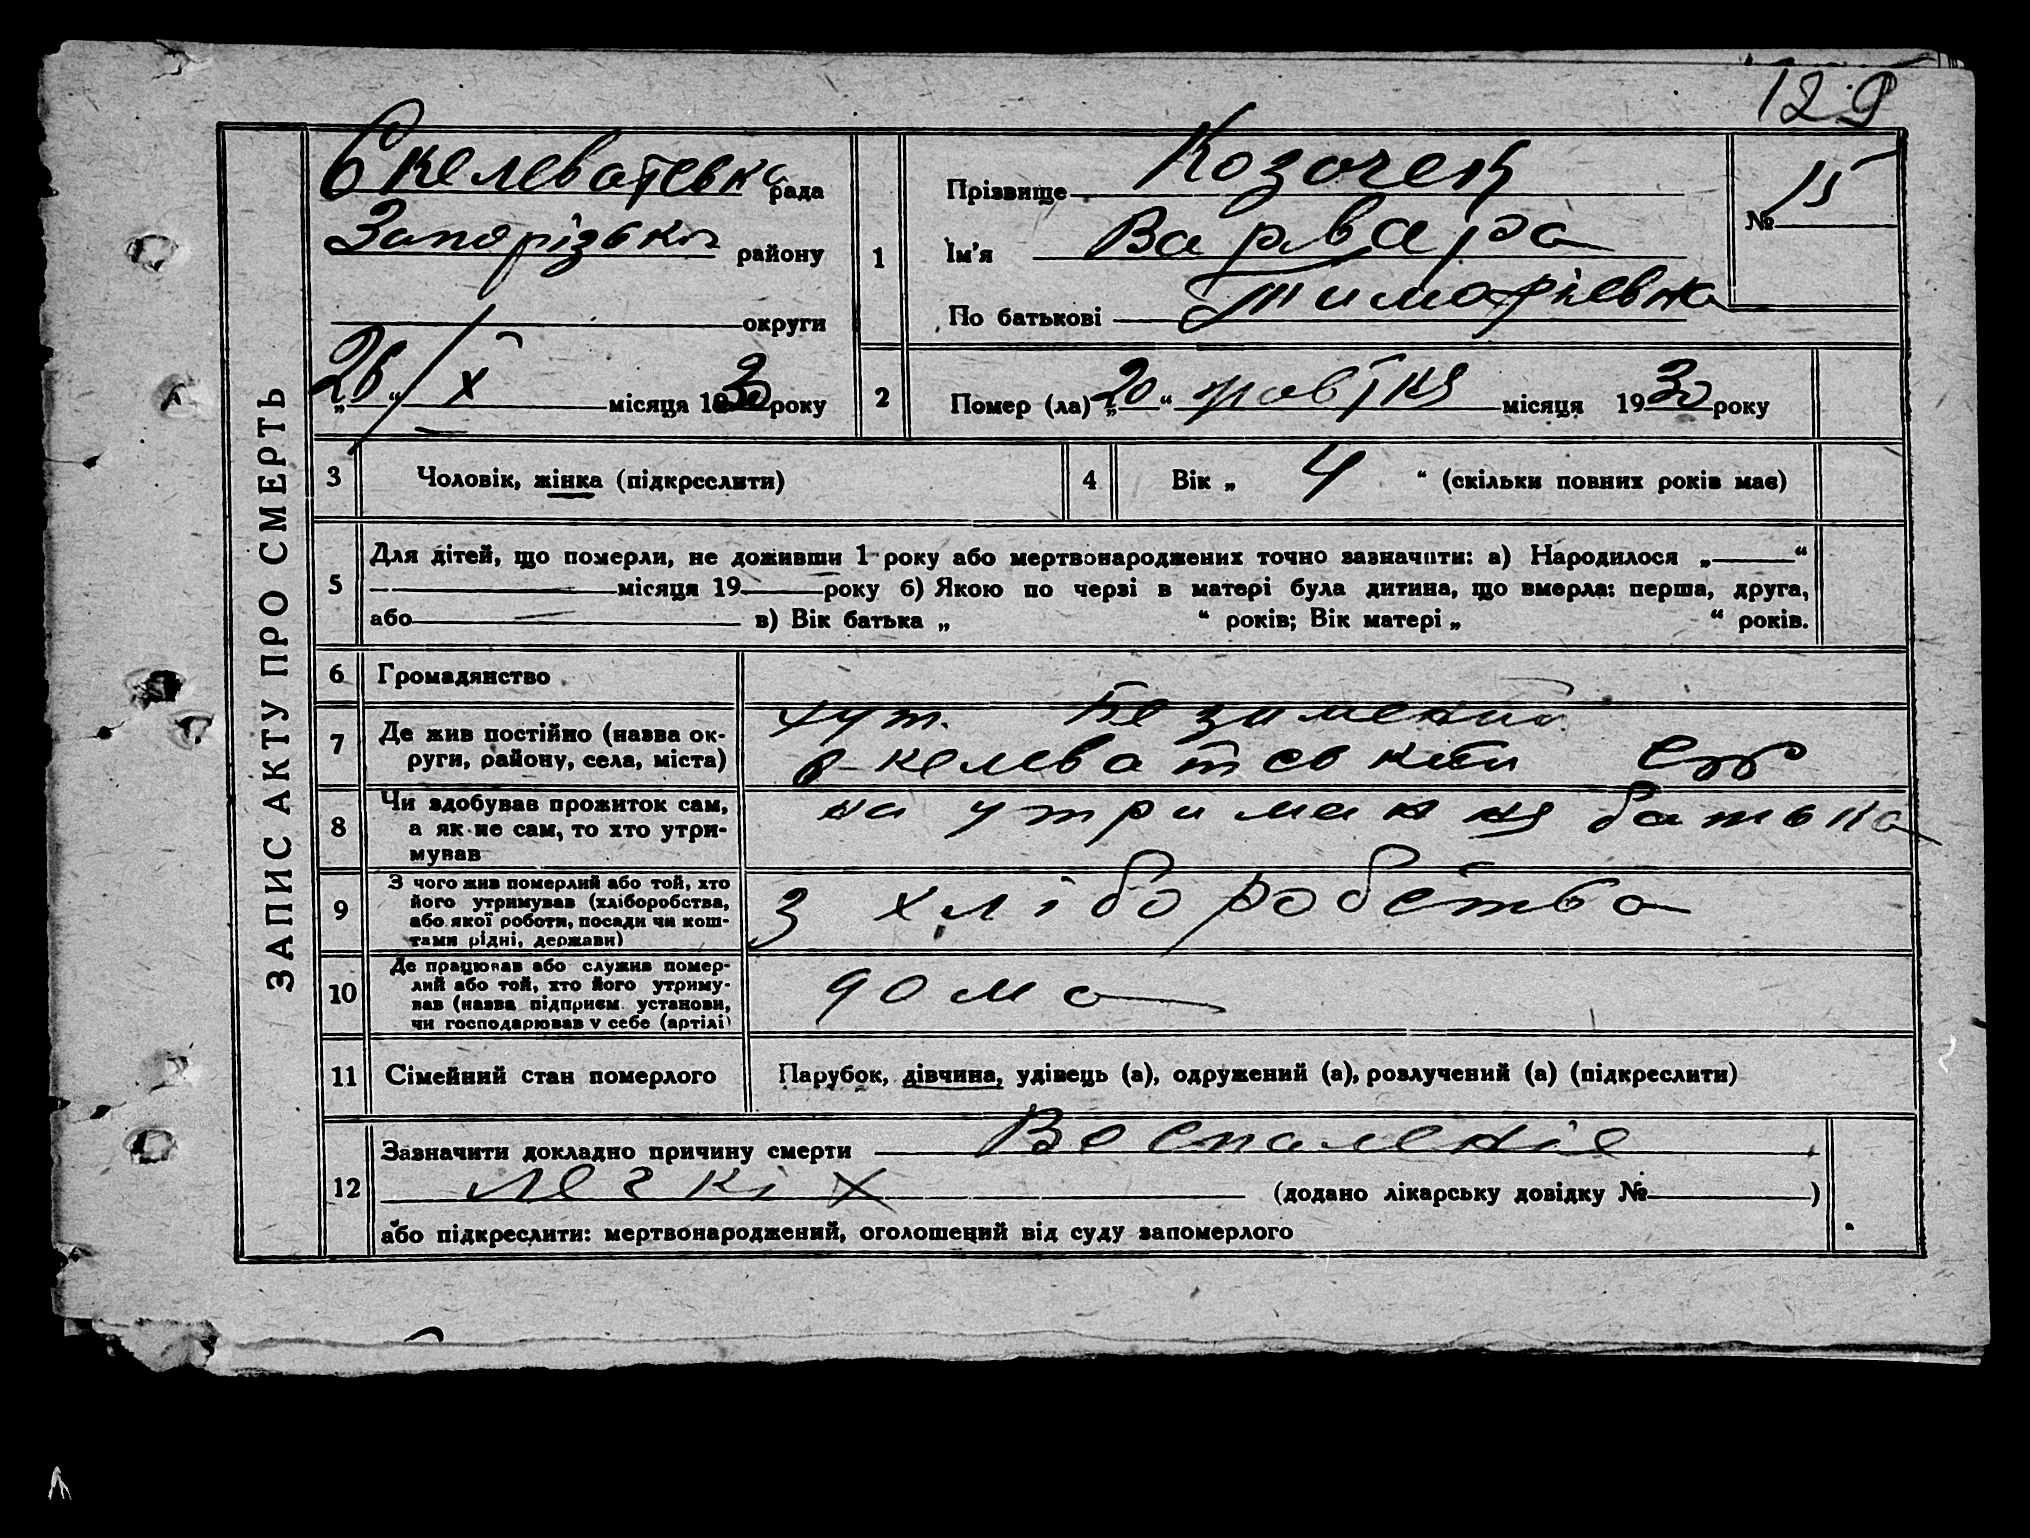 129
ЗАПИС АКТУ ПРО СМЕРТЬ
Скелеватевка рада
Запорізько району
округи
„26“ X місяця 1930 року
1
Прізвище Козочек
Ім'я Варвара
По батькові Тимофіевна
№ 15
2 Помер (ла) „20“ жовтня місяця 1930 року
3 Чоловік, жінка (підкреслити)
4 Вік „ 4 “ (скільки повних років має)
5 Для дітей, що померли, не доживши 1 року або мертвонароджених точно зазначити: а) Народилося „ “
місяця 19 року б) Якою по черзі в матері була дитина, що вмерла: перша, друга,
або в) Вік батька „ “ років; Вік матері „ “ років.
6 Громадянство
7 Де жив постійно (назва округи, району, села, міста)
хут. Безименний
Скелеватський
8 Чи здобував прожиток сам,
а як не сам, то хто утримував
на утримання батька
9 З чого жив померлий або той, хто
його утримував (хліборобства,
або якої роботи, посади чи коштами рідні, держави)
З хліборобства
10 Де працював або служив померлий або той, хто його утримував (назва підприєм. установи,
чи господарював у себе (артілі)
дома
11 Сімейний стан померлого
Парубок, дівчина, удівець (а), одружений (а), розлучений (а) (підкреслити)
12 Зазначити докладно причину смерти Воспаленіе
легкіх (додано лікарську довідку № )
або підкреслити: мертвонароджений, оголошений від суду запомерлого